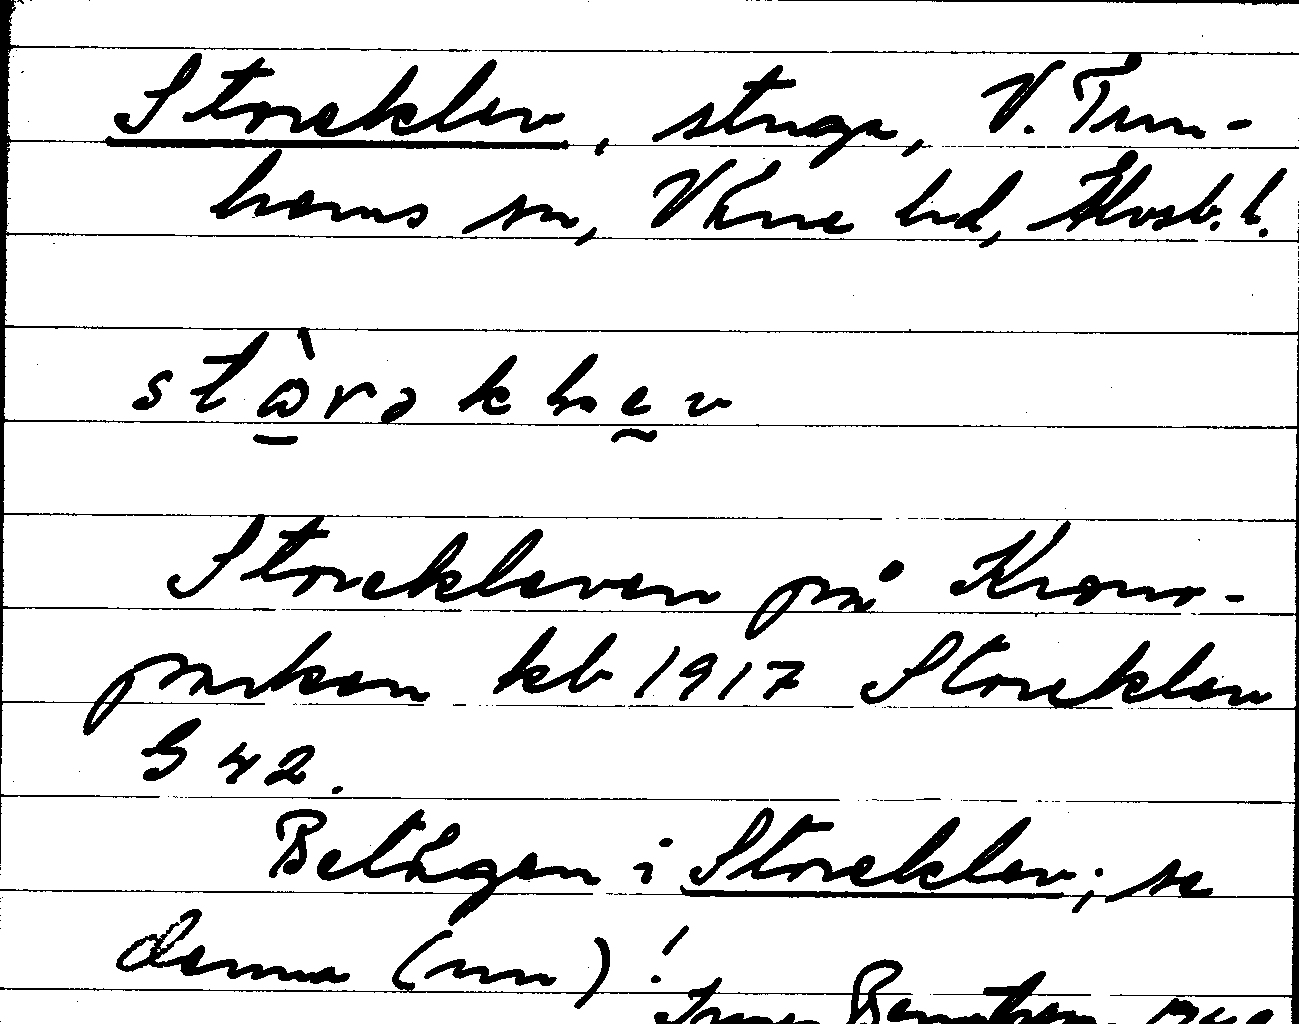 Storeklev, stuga, V. Tun-
hems sn, Väne hd, Älvsb. l.
stàrəklev
Storekleven på Krono-
parken kb 1917 Storeklev
G 42.
Belägen i Storeklev; se
denna (nn)!